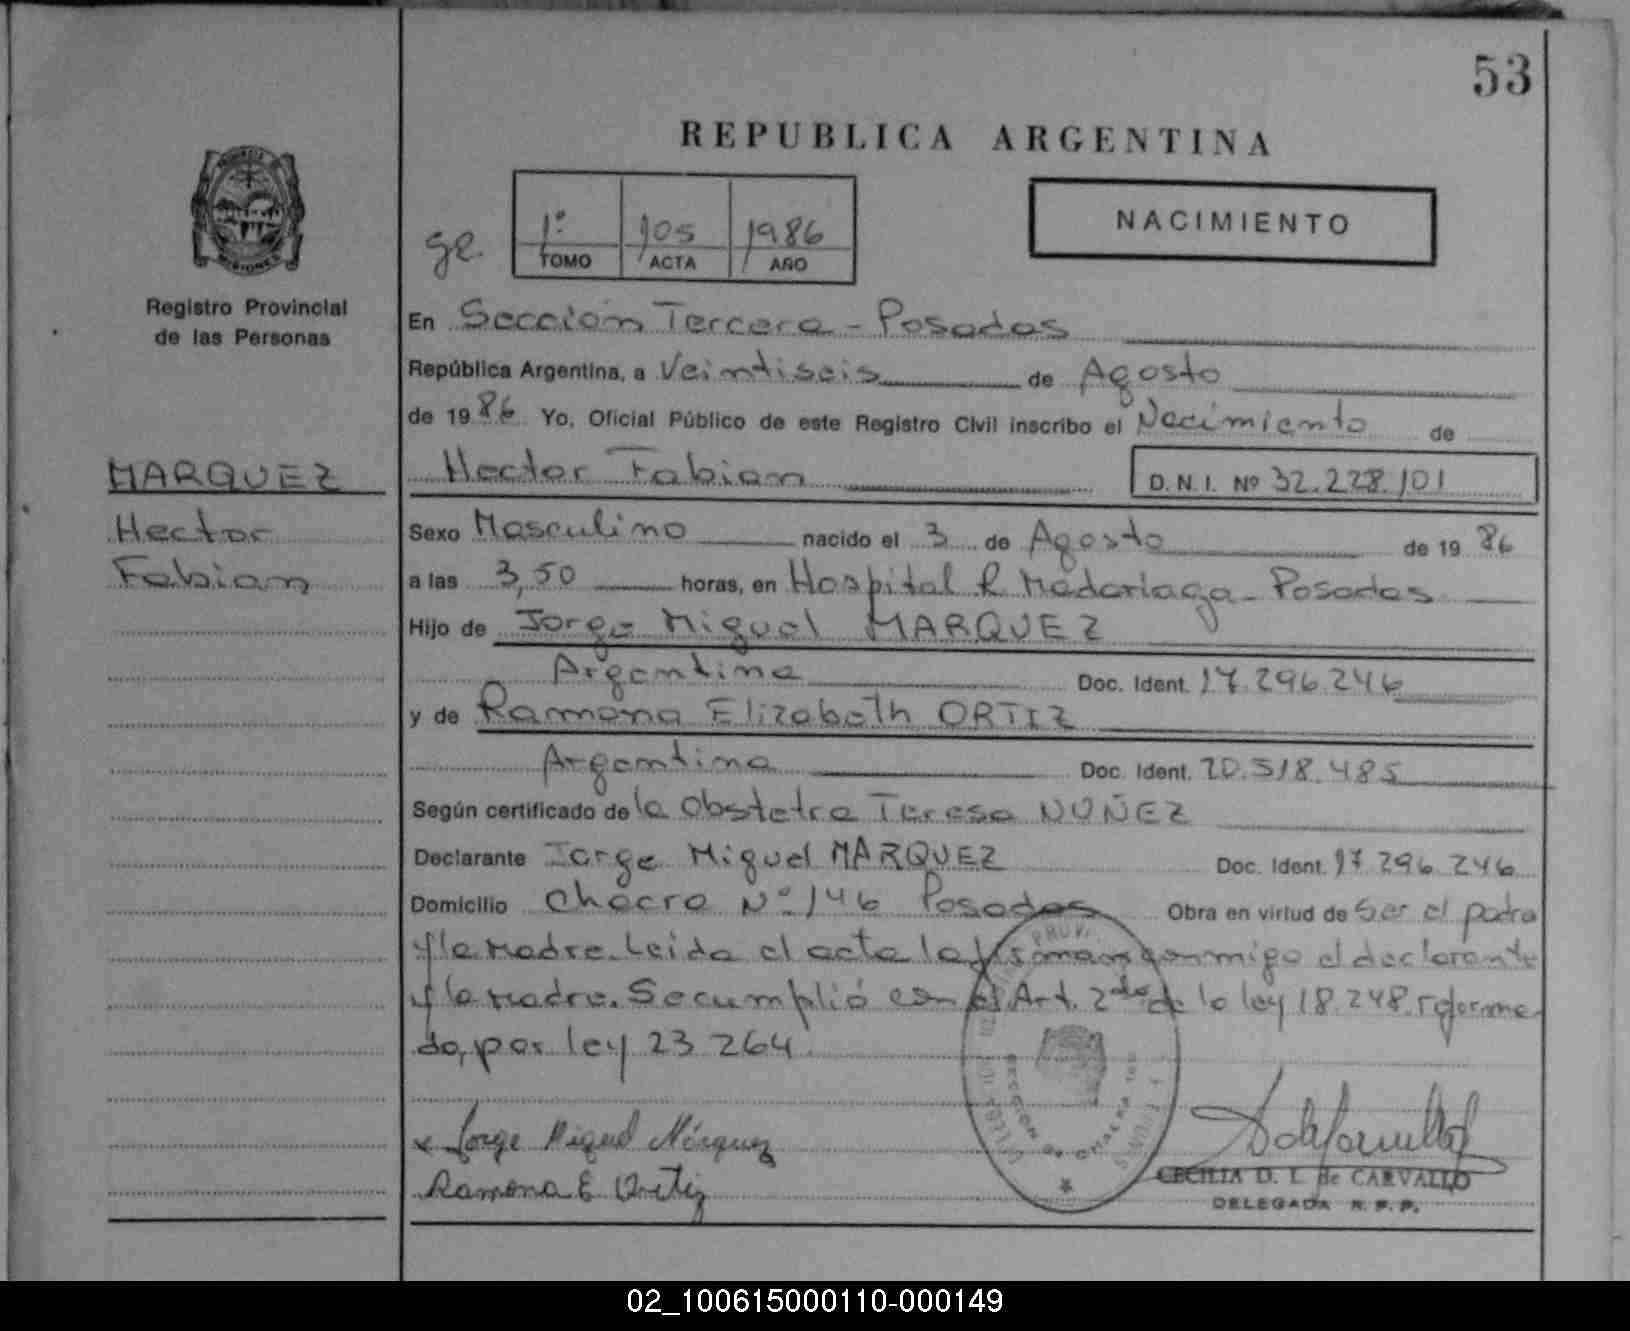 53
REPUBLICA ARGENTINA
ge.
1º 105 1986
TOMO ACTA AÑO
NACIMIENTO
Registro Provincial
de las Personas
MARQUEZ
Hector
Fabian
En Sección Tercera - Posadas
República Argentina, a Veintiseis de Agosto
de 1986 Yo, Oficial Público de este Registro Civil inscribo el Nacimiento de
Hector Fabian D.N.I. Nº 32.228.101
Sexo Masculino nacido el 3 de Agosto de 1986
a las 3,50 horas, en Hospital R. Madariaga - Posadas
Hijo de Jorge Miguel MARQUEZ
Argentino Doc. Ident. 17.296.246
y de Ramona Elizabeth ORTIZ
Argentina Doc. Ident. 20.518.485
Según certificado de la Obstetra Teresa NUÑEZ
Declarante Jorge Miguel MARQUEZ Doc. Ident. 17.296.246
Domicilio Chacra Nº 146 Posadas Obra en virtud de Ser el padre
y la Madre. Leida el acta la firman conmigo el declarante
y la Madre. Se cumplió con el Art. 2do de la ley 18.248. reforma-
da, por ley 23.264
x Jorge Miguel Márquez
Ramona E Ortiz
CECILIA D. L. de CARVALLO
DELEGADA R. P. P.
02_100615000110-000149